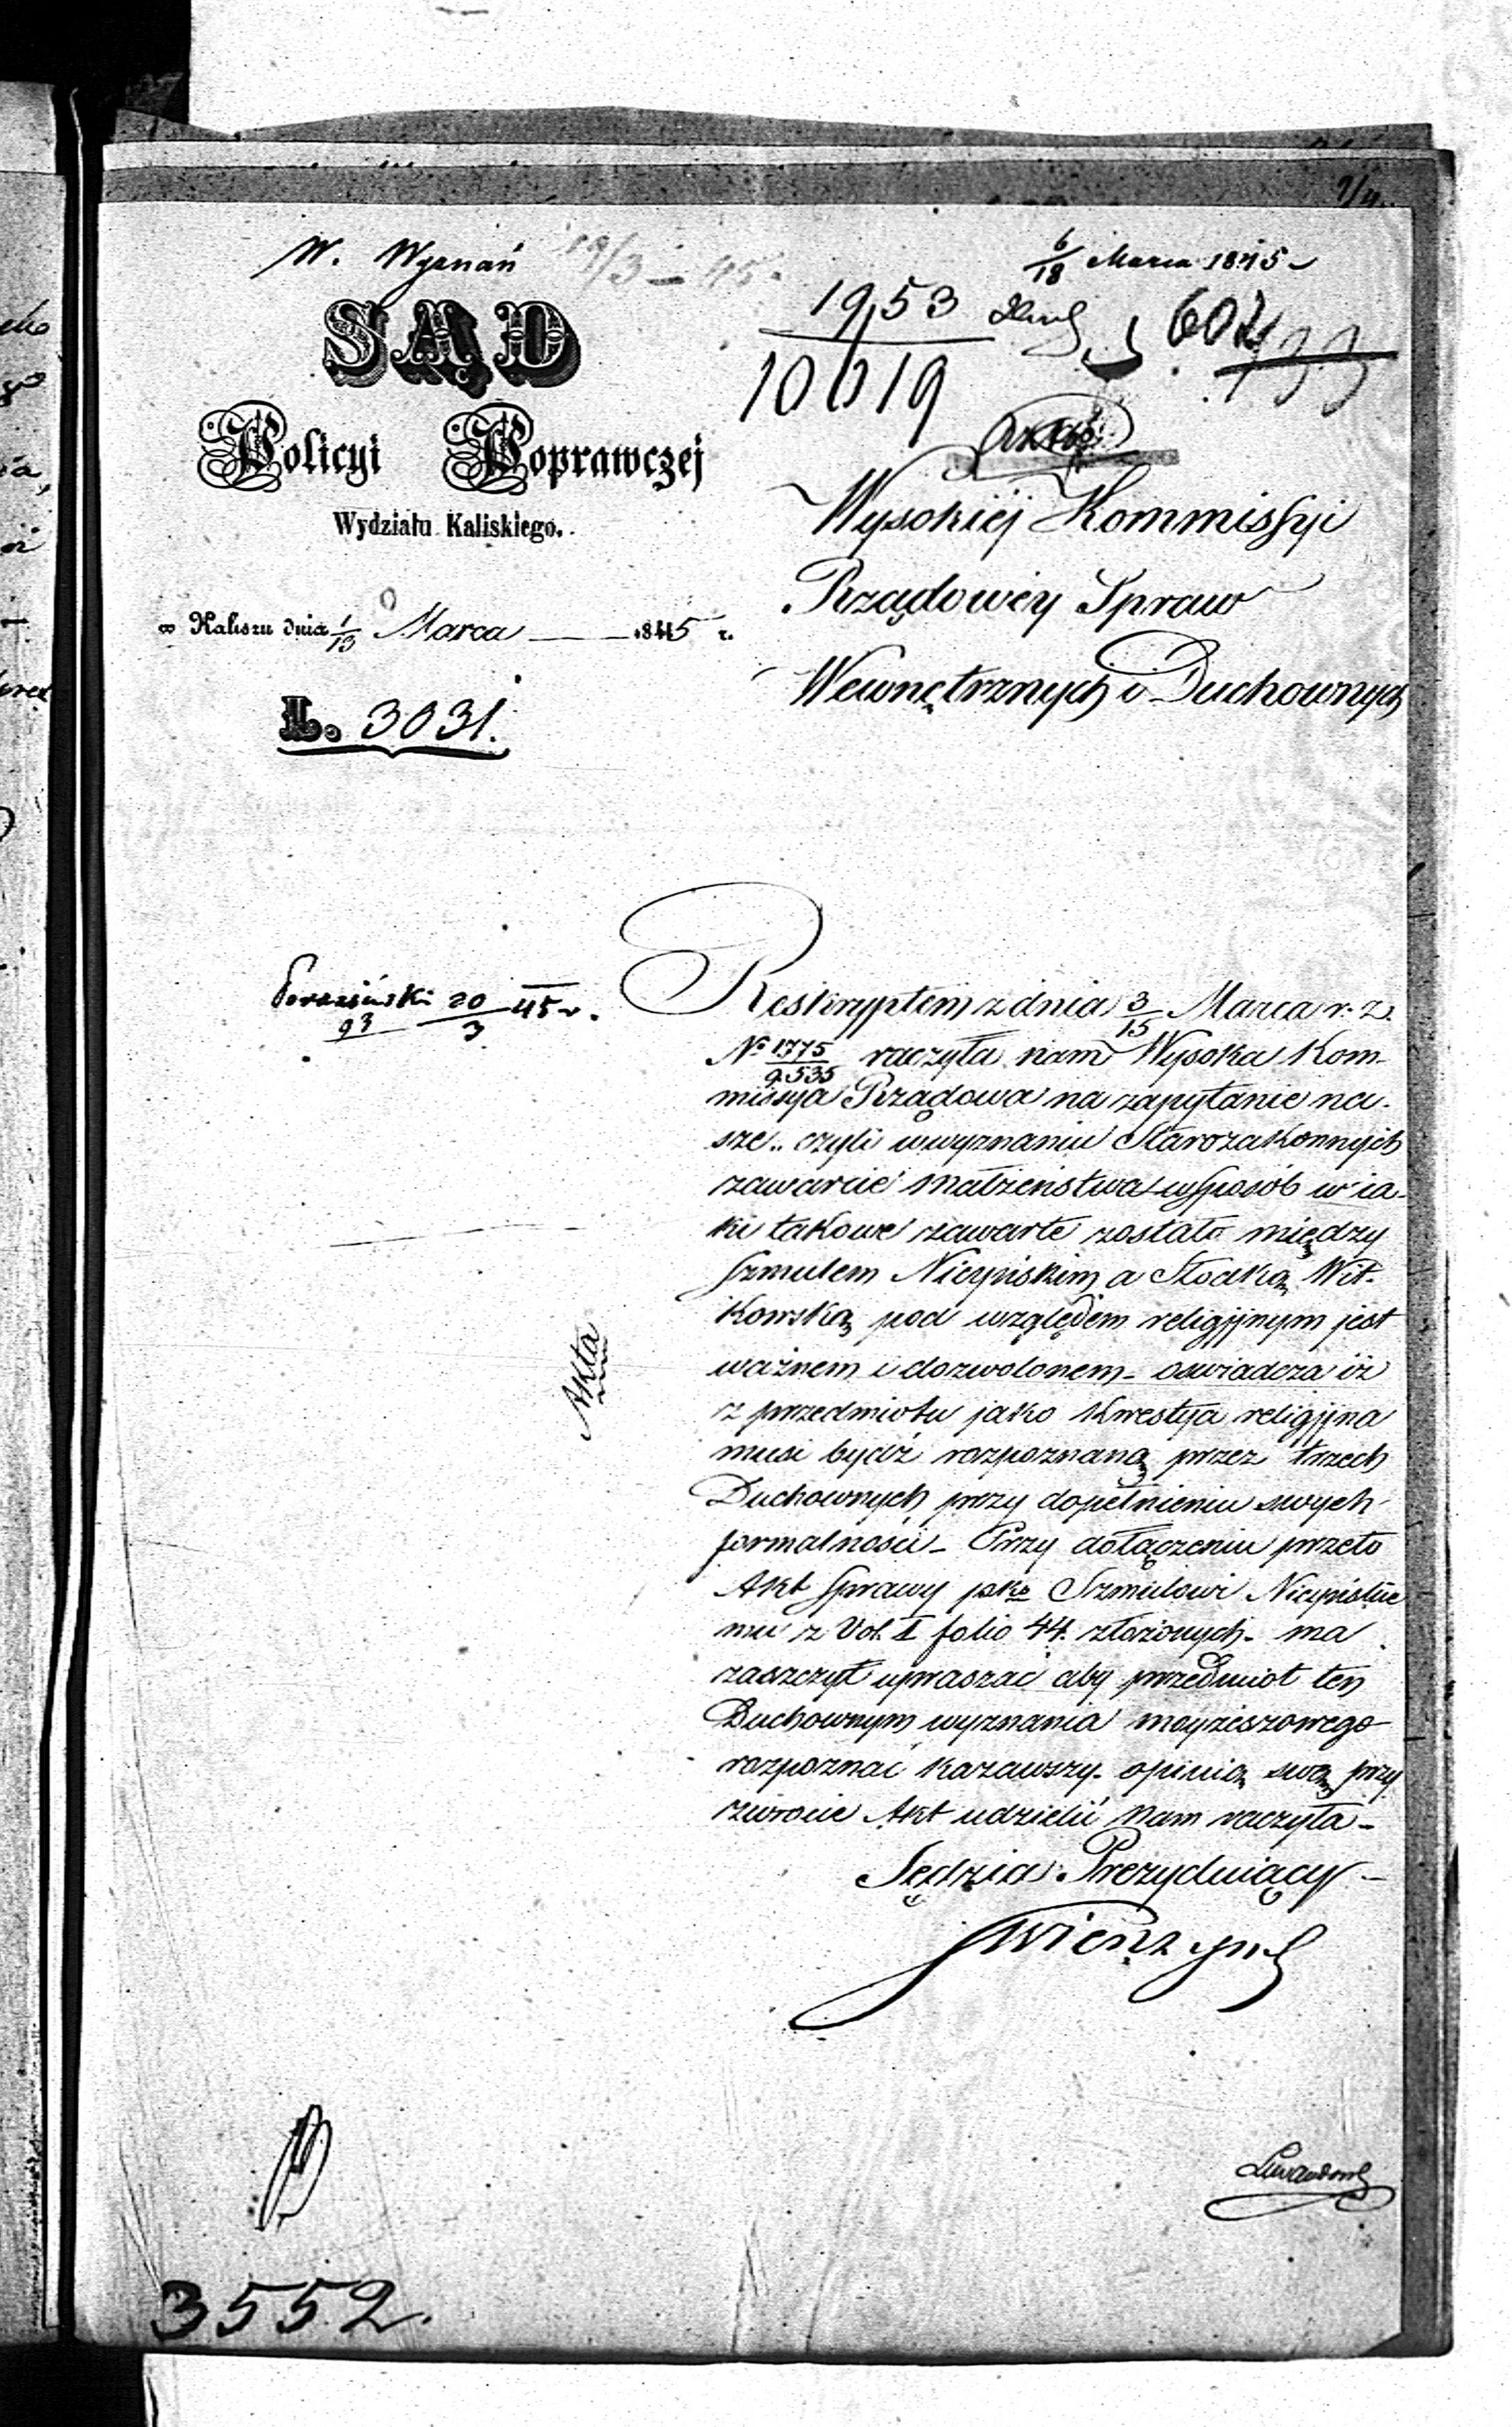 W. Wyznań 19/3 – 45.
6/18 Marca 1845
SĄD
1953
10019
602
133
Policyi Poprawczej
Wydziału Kaliskiego.
Wysokiéj Kommissyi
Rządowéy Spraw
Wewnętrznych i Duchownych
w Kaliszu dnia 1/13 Marca 1845 r.
L. 3031.
20/3 45 r.
93
Reskryptem z dnia 3/15 Marca r. z.
№ 1775/9535 raczyła nam Wysoka Kom-
missya Rządowa na zapytanie na-
sze „ czyli w wyznaniu Starozakonnych
zawarcie małżeństwa w sposób w ia-
ki takowe zawarte zostało między
Szmulem Nicpińskim a Wit-
kowską pod względem religijnym jest
ważnem i dozwolonem – oswiadcza iż
z przedmiotu jako kwestya religijna
musi bydź rozpoznaną przez trzech
Duchownych przy dopełnieniu swych
formalności – Przy dołączeniu przeto
Akt sprawy pko Szmulowi Nicpińskie
mu z Vol. I folio 44. złożonych – ma
zaszczyt upraszać aby przedmiot ten
Duchownym wyznania moyżeszowego
rozpoznać kazawszy – opinią swą przy
zwrocie Akt udzielić Nam raczyła –
Akta
Sędzia Prezyduiący –
3552.